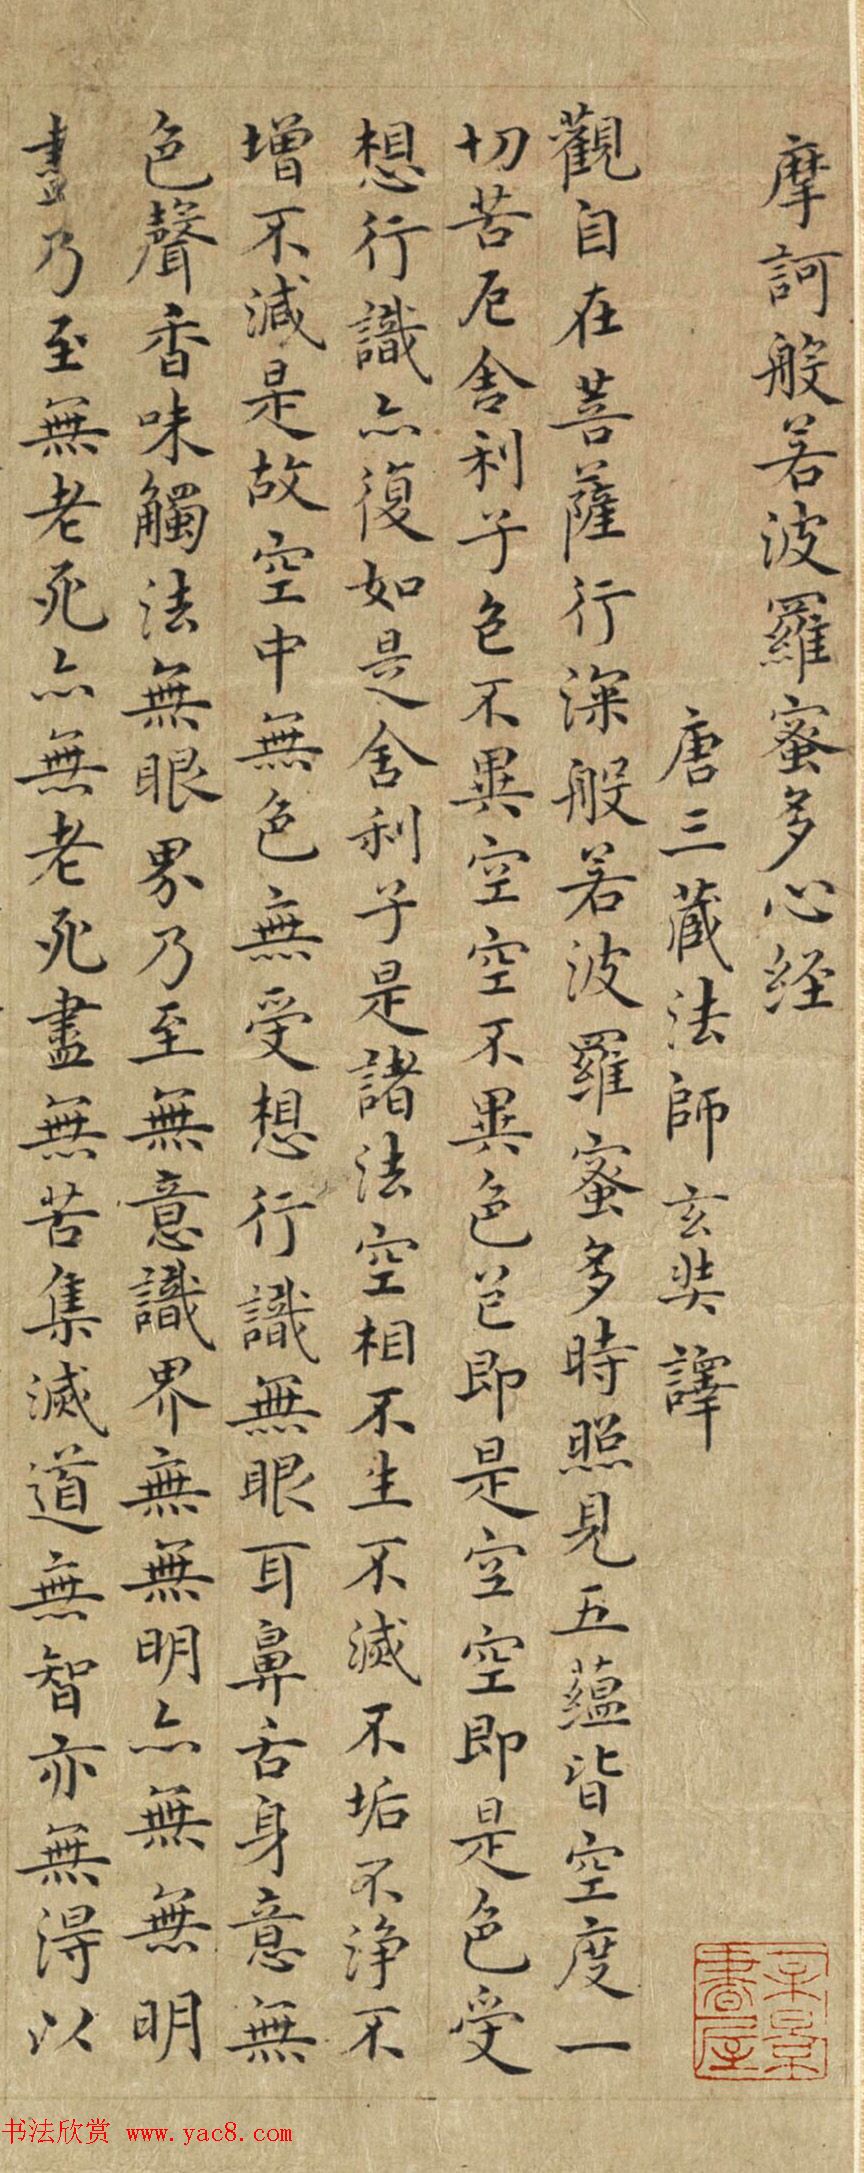 摩訶般若波羅蜜多心経
唐三藏法師玄奘譯
觀自在菩薩行深般若波羅蜜多時照見五蘊皆空度一
切苦厄舍利子色不異空空不異色色即是空空即是色受
想行識亦復如是舍利子是諸法空相不生不滅不垢不淨不
增不減是故空中無色無受想行識無眼耳鼻舌身意無
色聲香味觸法無眼界乃至無意識界無無明亦無無明
盡乃至無老死亦無老死盡無苦集滅道無智亦無得以
书法欣赏 www.yac8.com